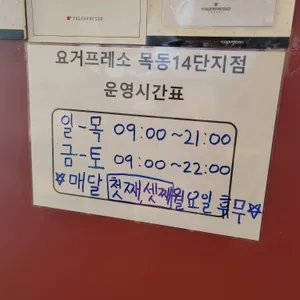 YOGERPRESSO
YOGERPRESSO
요거프레소 목동14단지점
운영시간표
일-목 09:00~21:00
금-토 09:00~22:00
☆매달 첫째,셋째월요일 휴무☆